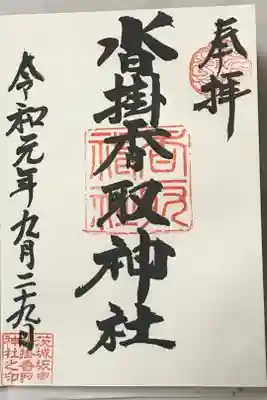 奉拝
沓掛香取神社
令和元年九月二十九日
茨城坂東
沓掛香取
神社之印